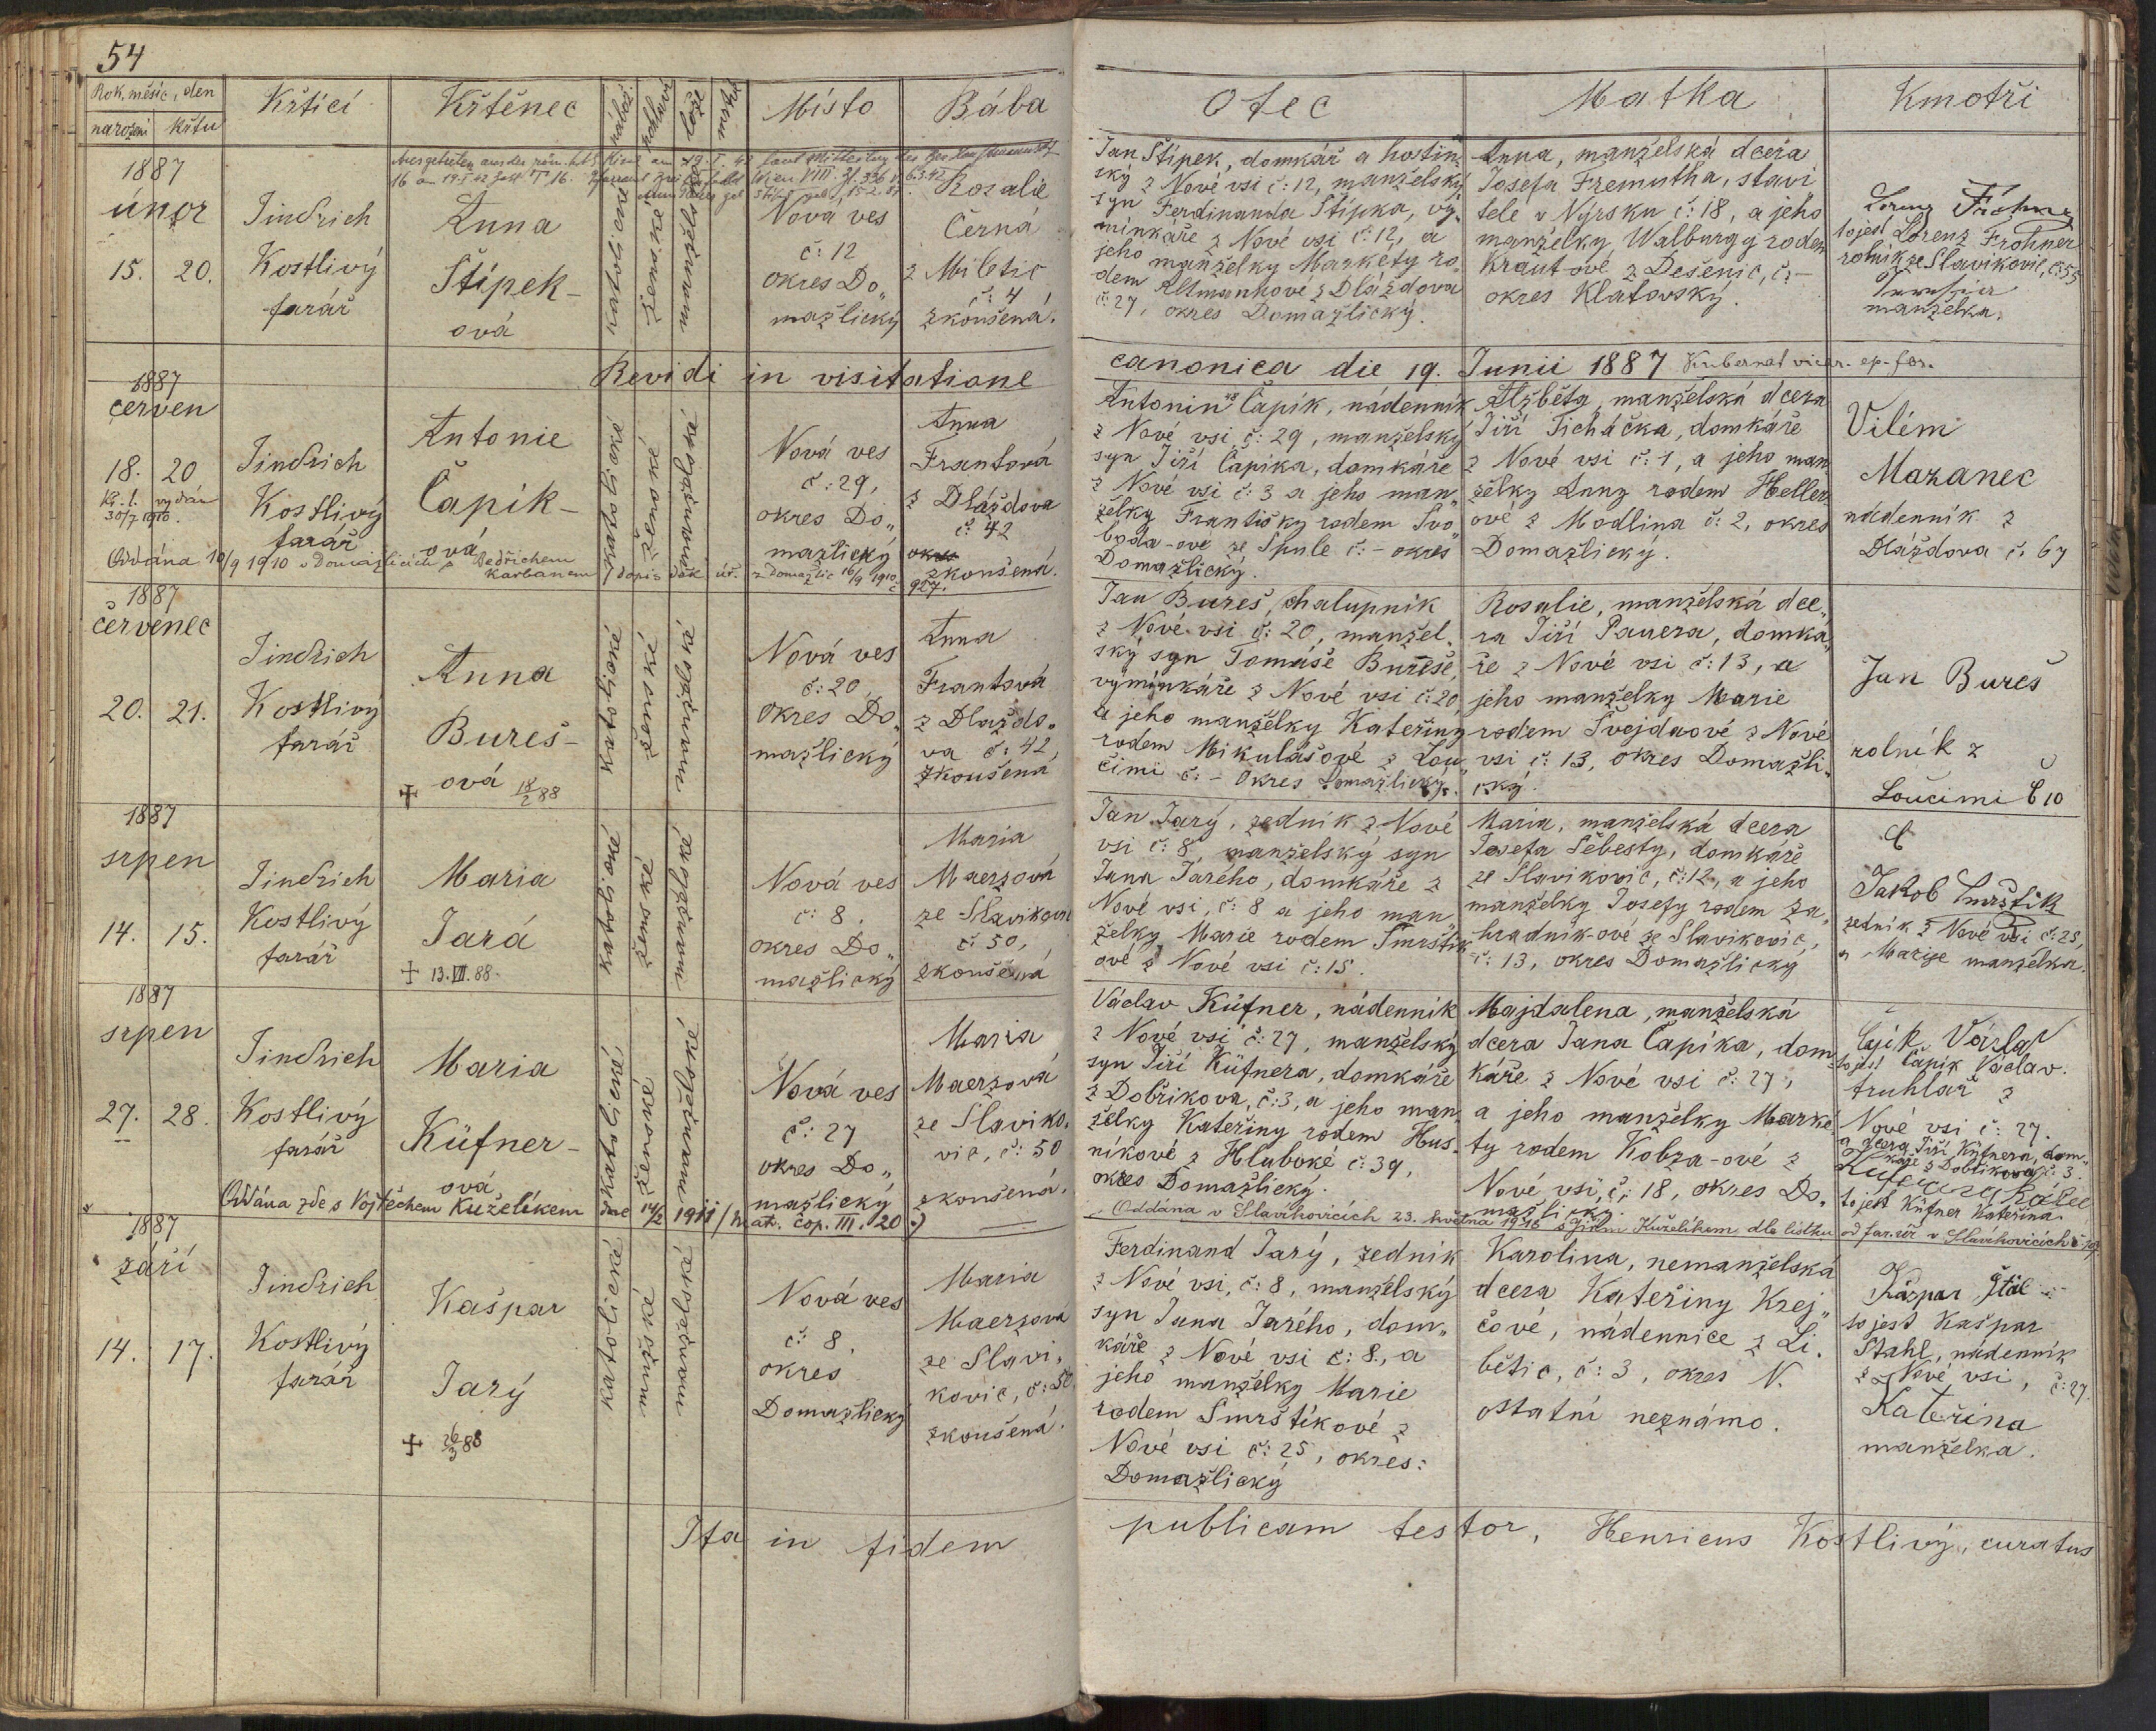 54
Rok, měsíc, den
narození křtu
Křtící
Křtěnec
nábož.
pohlaví
lože
Místo
Bába
Otec
Matka
Kmotři
1887
únor
15. 20.
Jindřich
Kostlivý
farář
Ausgetreten aus der röm. kath. Kirche am 19. I. 42 laut Mitteilung des
Anna
Štípek-
ová
katolické
ženské
manželské
Nová ves
č: 12
okres Do„
mažlický
Rozalie
Černá
z Miletic
č: 4
zkoušená.
Jan Štípek, domkář a hostin„
ský z Nové vsi č: 12, manželský
syn Ferdinanda Štípka, vý„
minkáře z Nové vsi č: 12, a
jeho manželky Markety ro„
dem Altmannové z Dláždova
č: 27, okres Domažlický.
Anna, manželská dcera
Josefa Fremutha, stavi
tele v Nýrsku č: 18, a jeho
manželky Walburgy rodem
Krautové z Dešenic, č: –
okres Klatovský.
Lorenz Fröhner
tojest Lorenz Fröhner
rolník ze Slavikovic, č: 55
manželka.
Revidi in visitatione
canonica die 19. Junii 1887 Kubernat vicar. ep. for.
1887
červen
18. 20
Kř. l. vydán
30/7 1910.
Jindřich
Kostlivý
farář
Antonie
Čapík-
ová
katolické
ženské
manželské
Nová ves
č: 29,
okres Do„
mažlický
Anna
Frantová
z Dláždova
č: 42
okres
zkoušená.
Oddána 10/9 1910 v Domažlicích s Bedřichem
Karbanem (dopis děk. úř. z Domažlic 16/9 1910 č. 927.
Antonín Čapík, nádenník
z Nové vsi č: 29, manželský
syn Jiří Čapíka, domkáře
z Nové vsi č: 3 a jeho man„
želky Františky rodem Svo„
boda-ové ze Spule č: – okres
Domažlický.
Alžběta, manželská dcera
Jiří Ticháčka, domkáře
z Nové vsi č: 1, a jeho man
želky Anny rodem Heller
ové z Modlina č: 2, okres
Domažlický.
Vilém
Mazanec
nádenník z
Dláždova č. 67
1887
červenec
20. 21.
Jindřich
Kostlivý
farář
Anna
Bureš-
ová
✝ 18/2 88
katolické
ženské
manželské
Nová ves
č: 20,
okres Do„
mažlický
Anna
Frantová
z Dlaždo„
va č: 42,
zkoušená
Jan Bureš, chalupník
z Nové vsi č: 20, manžel„
ský syn Tomáše Bureše,
výminkáře z Nové vsi č: 20,
a jeho manželky Kateřiny
rodem Mikulášové z Lou„
čimi č: – okres Domažlický.
Rosalie, manželská dce„
ra Jiří Pauera, domká„
ře z Nové vsi č: 13, a
jeho manželky Marie
rodem Švejdaové z Nové
vsi č: 13, okres Domažli„
cký.
Jan Bureš
rolník z
Loučimi č 10
1887
srpen
14. 15.
Jindřich
Kostlivý
farář
Maria
Jará
✝ 13.VII.88.
katolické
ženské
manželské
Nová ves
č: 8,
okres Do„
mažlický
Maria
Maerzová
ze Slavikovic
č: 50,
zkoušená
Jan Jarý, zedník z Nové
vsi č: 8 manželský syn
Jana Jarého, domkáře z
Nové vsi, č: 8 a jeho man„
želky Marie rodem Smrštík
ové z Nové vsi č: 15.
Maria, manželská dcera
Josefa Šebesty, domkáře
ze Slavikovic, č: 12, a jeho
manželky Josefy rodem Za„
hradník-ové ze Slavikovic,
č: 13, okres Domažlický
Jakob Smrštík
zedník z Nové vsi č: 25,
a Marije manželka.
1887
srpen
27. 28.
Jindřich
Kostlivý
farář
Maria
Küfner-
ová
katolické
ženské
manželské
Nová ves
č: 27
okres Do„
mažlický
Maria
Maerzová
ze Slaviko„
vic, č: 50
zkoušená.
Oddána zde s Vojtěchem Kuželíkem dne 14/2 1911 / Mat. čop. III. 20.)
Václav Küfner, nádenník
z Nové vsi č: 27, manželský
syn Jiří Küfnera, domkáře
z Dobřikova, č: 3, a jeho man„
želky Kateřiny rodem Hus„
níkové z Hluboké č: 39,
okres Domažlický.
Majdalena, manželská
dcera Jana Čapíka, dom
káře z Nové vsi č: 27,
a jeho manželky Marké
ty rodem Kobza-ové z
Nové vsi, č: 18, okres Do„
mažlický.
Čapík Václav
tojest Čapík Václav.
truhlář z
Nové vsi č: 27.
a dcera Jiří Küfnera, dom„
káře z Dobřikova, č: 3.
tojest Küfner Kateřina.
Oddána v Slavikovicích 23. května 1916 s Kuželíkem dle lístku od far. úř. v Slavikovicích
1887
září
14. 17.
Jindřich
Kostlivý
farář
Kašpar
Jarý
✝ 26/3 88
katolické
mužské
manželské
Nová ves
č: 8,
okres
Domažlický
Maria
Maerzová
ze Slavi„
kovic, č: 50
zkoušená.
Ferdinand Jarý, zedník
z Nové vsi, č: 8, manželský
syn Jana Jarého, dom„
káře z Nové vsi č: 8, a
jeho manželky Marie
rodem Smrštíkové z
Nové vsi č: 25, okres:
Domažlický
Karolina, nemanželská
dcera Kateřiny Krej„
čové, nádennice z Li„
bětic, č: 3, okres N.
ostatní neznámo.
Kašpar Štál
tojest Kašpar
Stahl, nádenník
z Nové vsi, č: 27.
Kateřina
manželka.
Ita in fidem publicam testor, Henricus Kostlivý, curatus